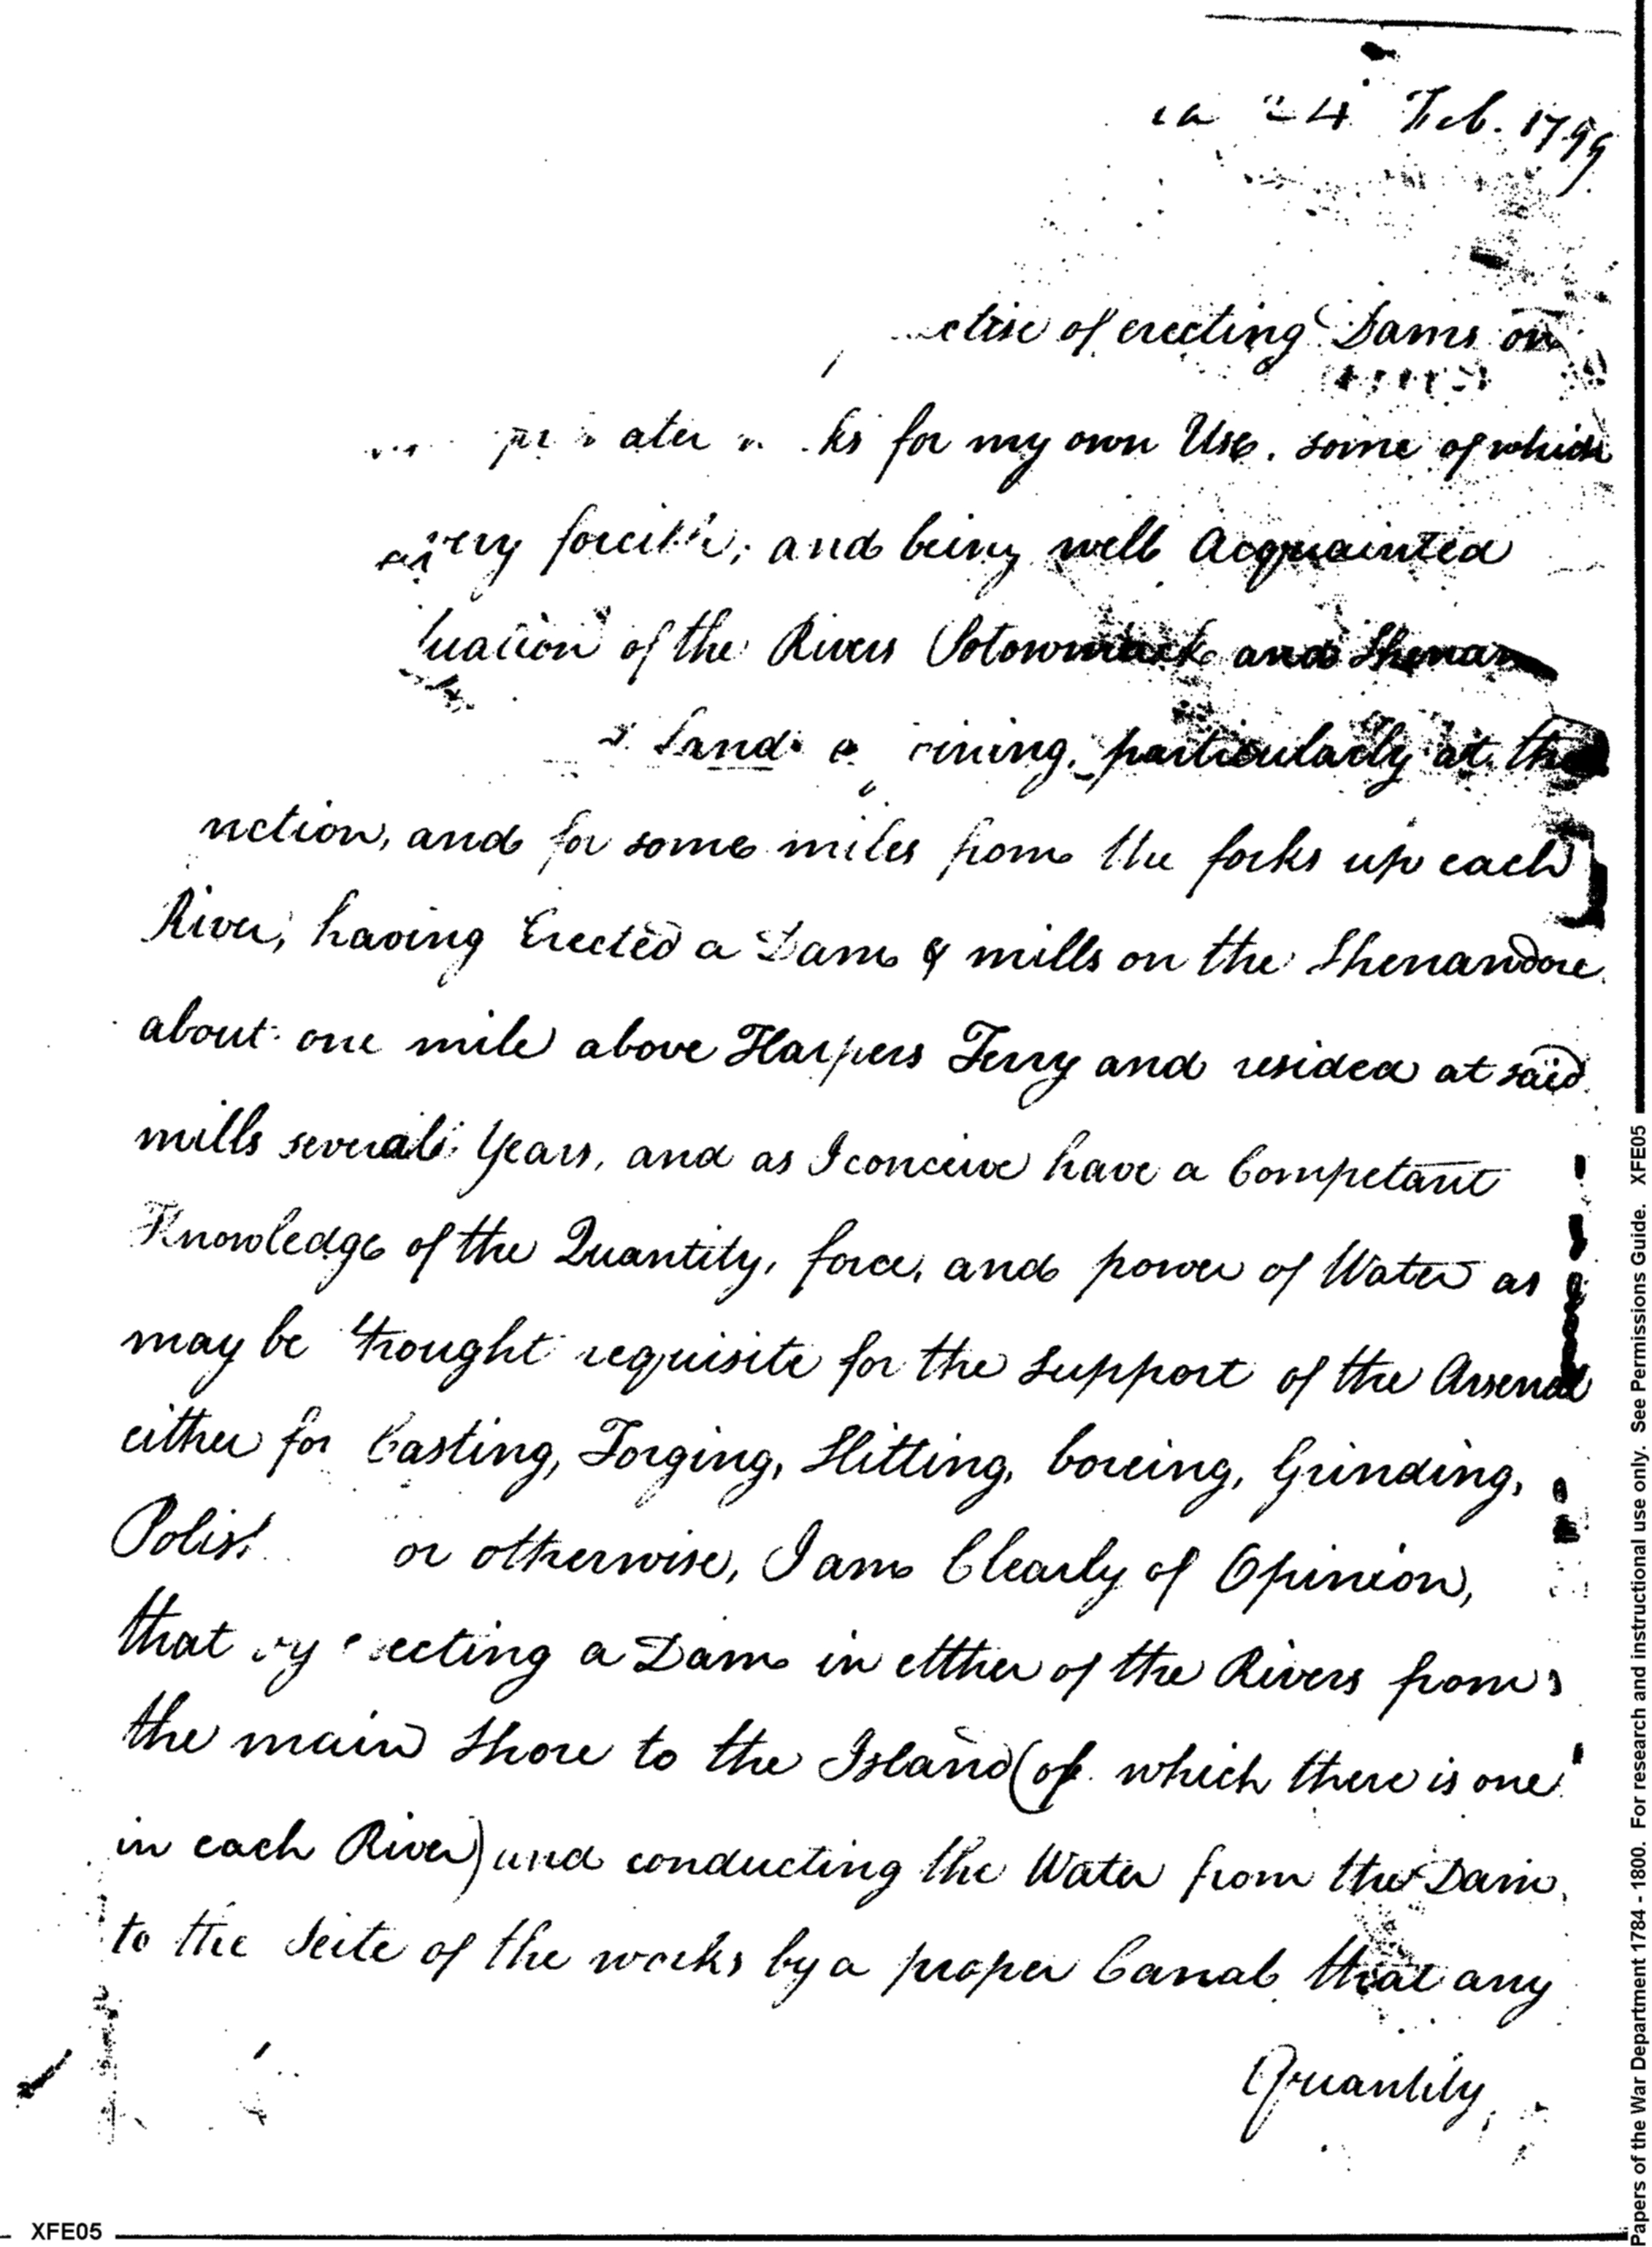 24 Feb. 1799
of erecting Dams on
for my own Use. some of which
very forcible; and being well Acquainted
of the Rivers Potowmack and Shenan
Land particularly at the
nction, and for some miles from the forks up each
River, having Erected a Dam & mills on the Shenandore
about one mile above Harpers Ferry and resided at said
mills several Years, and as I conceive have a Competant
Knowledge of the Quantity, force, and power of Water as
may be thought requisite for the Support of the Arsenal
either for Casting, Forging, Slitting, boreing, Grinding,
Polish or otherwise, I am Clearly of Opinion,
that by erecting a Dam in either of the Rivers from
the main Shore to the Island (of which there is one
in each River) and conducting the Water from the Dam
to the Seite of the works by a proper Canal that any
Quantity,
XFE05
Papers of the War Department 1784 - 1800. For research and instructional use only. See Permissions Guide. XFE05